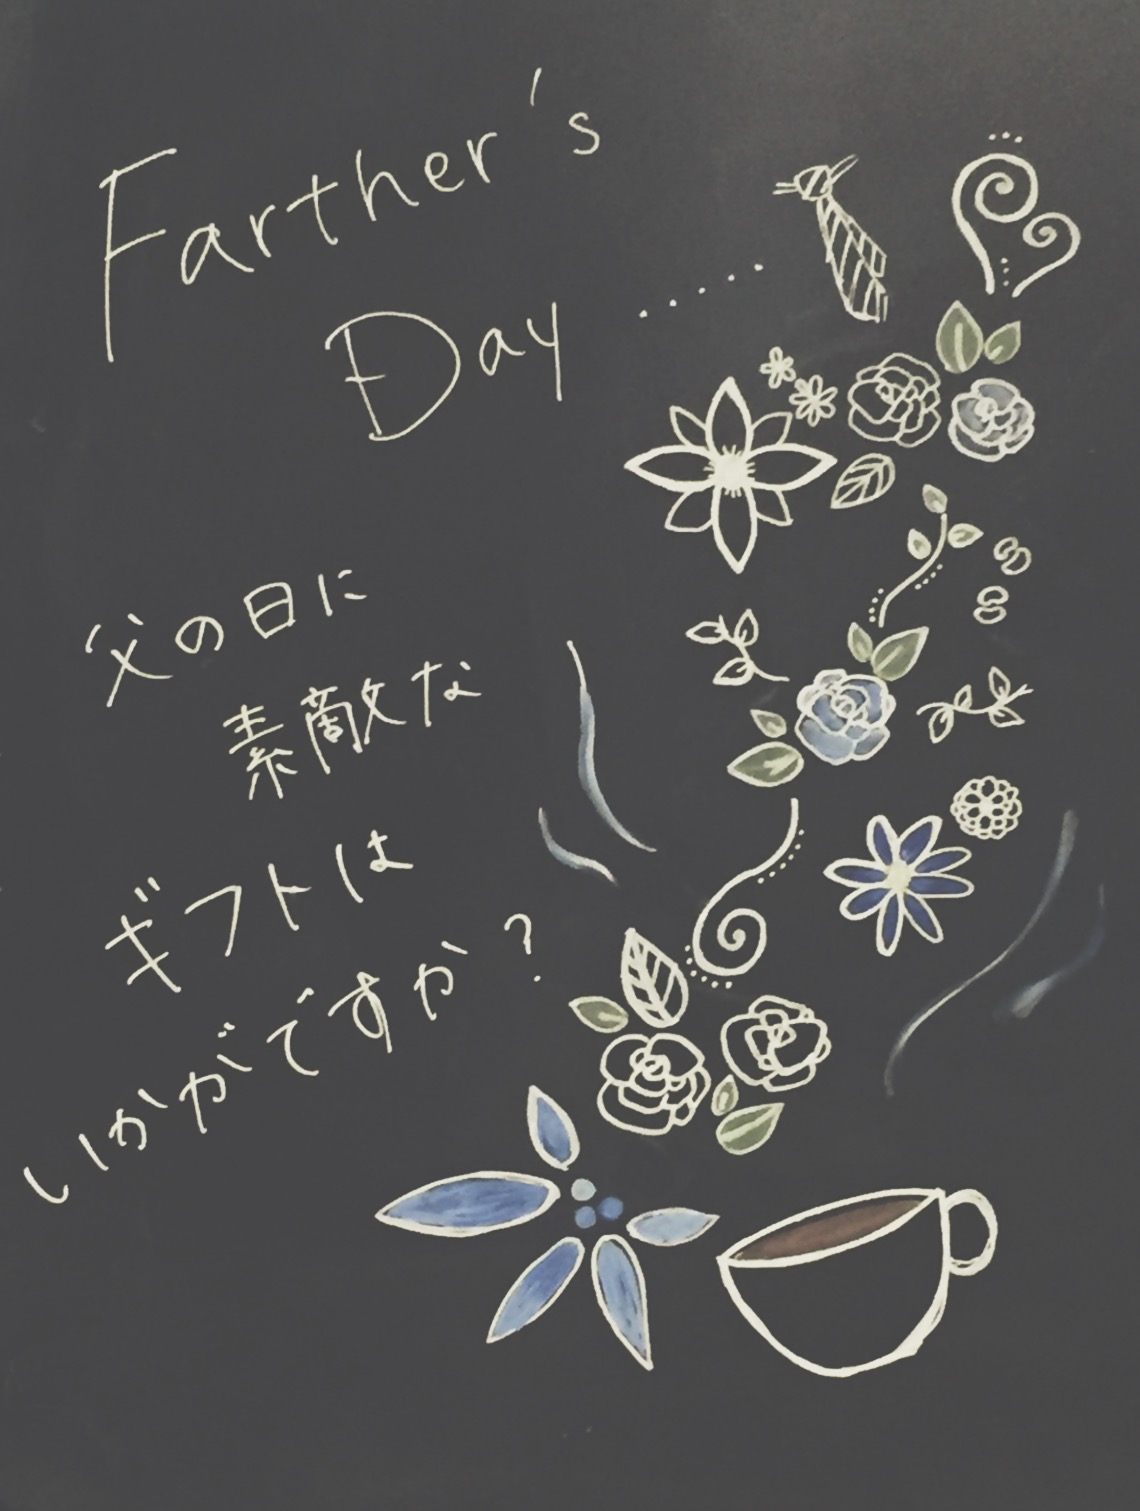 Farther's
Day ......
父の日に
素敵な
ギフトは
いかがですか?